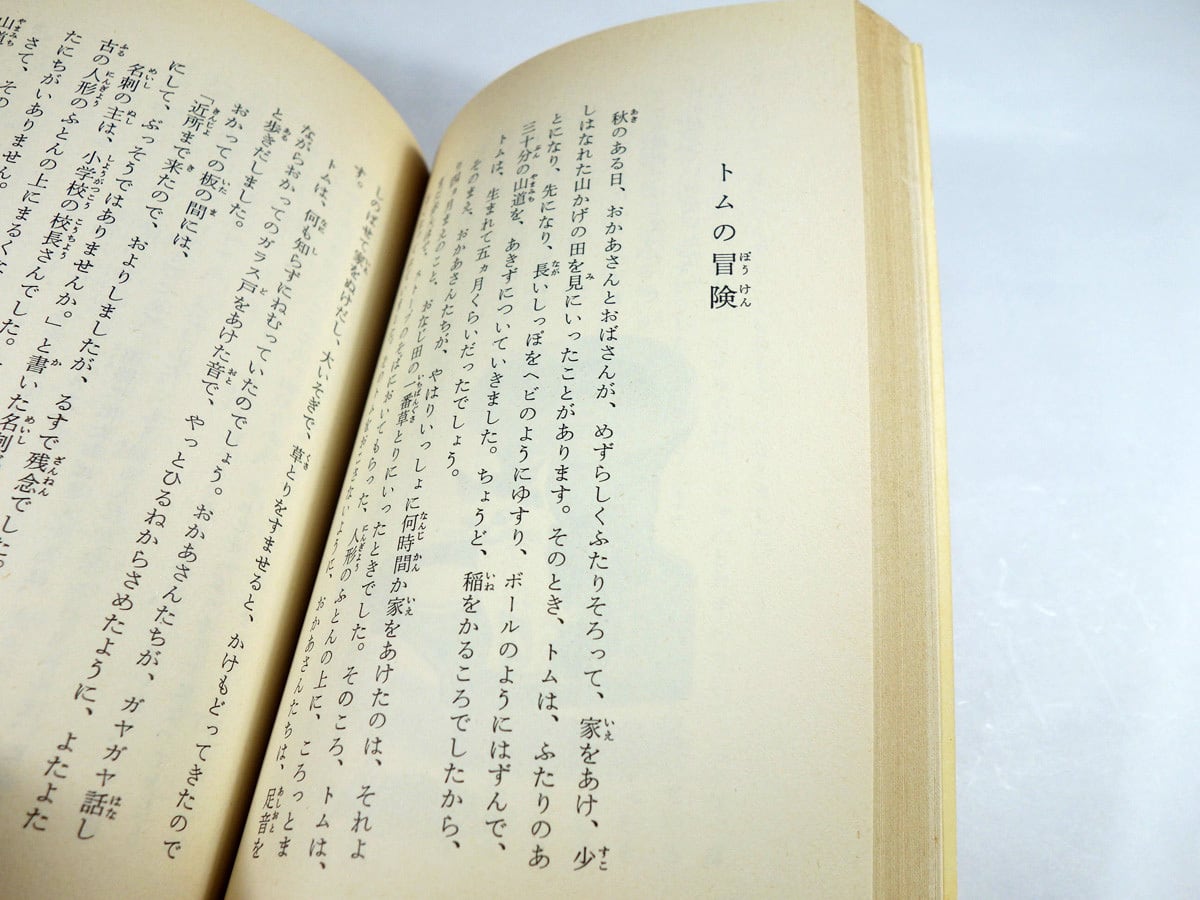 トムの冒険
秋のある日、おかあさんとおばさんが、めずらしくふたりそろって、家をあけ、少
しはなれた山かげの田を見にいったことがあります。そのとき、トムは、ふたりのあ
とになり、先になり、長いしっぽをヘビのようにゆすり、ボールのようにはずんで、
三十分の山道を、あきずについていきました。ちょうど、稲をかるころでしたから、
トムは、生まれて五ヵ月くらいだったでしょう。
そのまえ、おかあさんたちが、やはりいっしょに何時間か家をあけたのは、それよ
り四ヵ月まえのこと、おなじ田の一番草とりにいったときでした。そのころ、トムは、
ストーブのそばにおいてもらった、人形のふとんの上に、ころっとま
トムをおこさないように、おかあさんたちは、足音を
しのばせて家をぬけだし、大いそぎで、草とりをすませると、かけもどってきたので
す。
トムは、何も知らずにねむっていたのでしょう。おかあさんたちが、ガヤガヤ話し
ながらおかってのガラス戸をあけた音で、やっとひるねからさめたように、よたよた
と歩きだしました。
おかっての板の間には、
「近所まで来たので、およりしましたが、るすで残念でした。
にして、ぶっそうではありませんか。」と書いた名刺
名刺の主は、小学校の校長さんでした。
古の人形のふとんの上にまるくな
たにちがいありません。
さて、その
山道